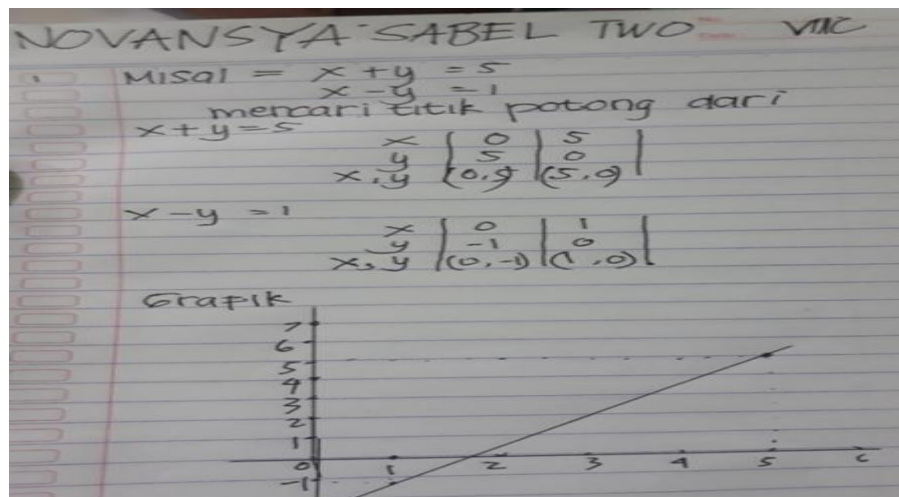 NOVANSYA SABEL TWO VIIC
1 Misal = x + y = 5
x - y = 1
mencari titik potong dari
x + y = 5
x | 0 | 5 |
y | 5 | 0 |
x, y | (0,5) | (5,0) |
x - y = 1
x | 0 | 1 |
y | -1 | 0 |
x, y | (0, -1) | (1, 0) |
Grafik
7
6
5
4
3
2
1
0 1 2 3 4 5
-1